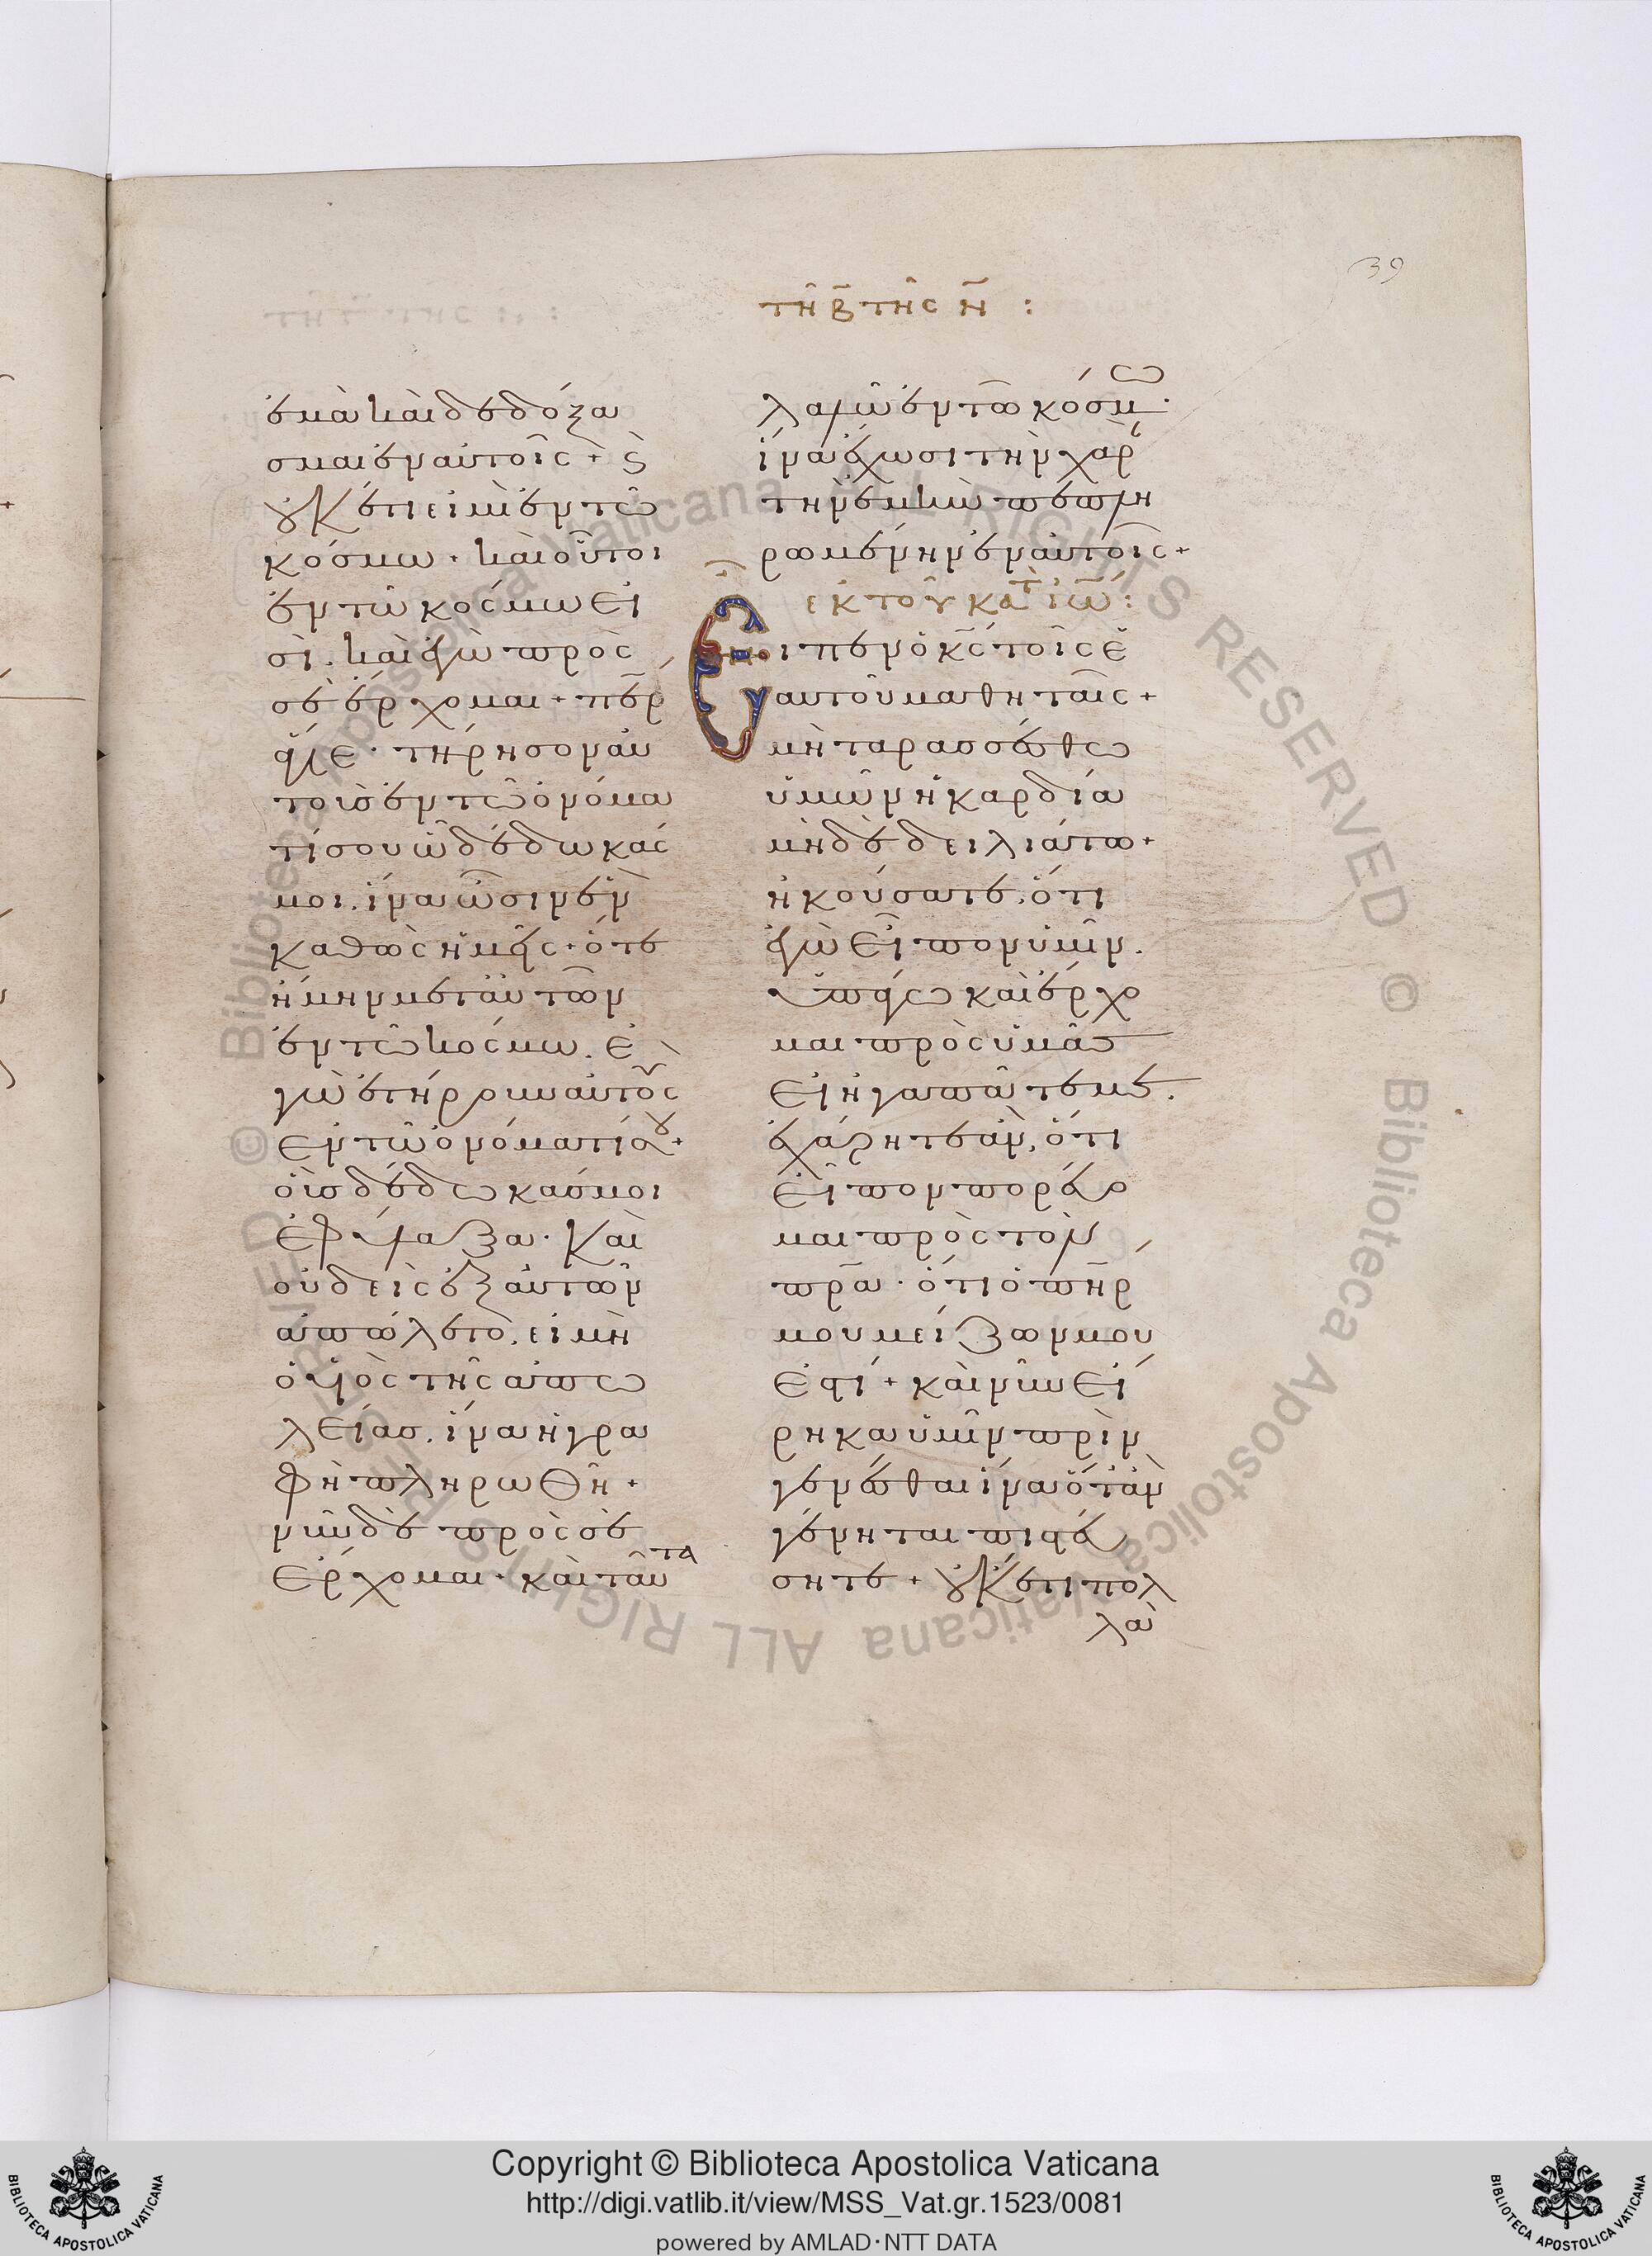 39
τῆ β̄ τῆς Ν̄ :
ἐμὰ καὶ δεδόξα
σμαι ἐν αὐτοῖς + ϗ
οὐκέτι εἰμὶ ἐν τῶ
κόσμω + καὶ οὗτοι
ἐν τῶ κόσμω εἰ
σὶ . καὶ ἐγὼ πρὸς
σὲ ἔρχομαι + πε̄ρ
ἅγιε · τήρησον αὐ
τοὺσ ἐν τῶ ὀνόμα
τί σου ὧ δέδωκάς
μοι . ἵνα ὦσιν ἓν
καθὼς ἡμεῖς + ὅτε
ἤμην μετ' αὐτῶν
ἐν τῶ κόσμω . ἐ
γὼ ἐτήρουν αὐτοὺς
ἐν τῶ ὀνόματί σου +
οὓσ δέδωκάσ μοι
ἐφύλαξα · καὶ
οὐδεὶς ἐξ αὐτῶν
ἀπώλετο . εἰ μὴ
ὁ υἱὸς τῆς ἀπω
λείασ . ἵνα ἡ γρα
φὴ πληρωθῆ +
νῦν δὲ πρὸς σὲ
ἔρχομαι · καὶ ταῦτα
λαλῶ ἐν τῶ κόσμω ·
ἵνα ἔχωσι τὴν χαρ
τὴν ἐμὴν πεπλη
ρωμένην ἐν αὐτοῖς +
ἐκ τοῦ κατ ἰω̄ :
Εἶπεν ὁ κ̄ς τοῖς ἑ
αυτοῦ μαθηταῖς +
μὴ ταρασσέσθω
ὑμῶν ἡ καρδία
μηδὲ δειλιάτω +
ἠκούσατε . ὅτι
ἐγὼ εἶπον ὑμῖν .
ὑπάγω καὶ ἔρχο
μαι πρὸς ὑμᾶς
εἰ ἠγαπᾶτέ με .
ἐχάρητε ἂν , ὅτι
εἶπον πορεύο
μαι πρὸς τὸν
πρ̄α · ὅτι ὁ πη̄ρ
μου μείζων μου
ἐστί + καὶ νῦν εἴ
ρηκα ὑμῖν πρὶν
γενέσθαι ἵνα ὅταν
γένηται πιστεύ
σητε + οὐκέτι πολ
λὰ
Copyright © Biblioteca Apostolica Vaticana
http://digi.vatlib.it/view/MSS_Vat.gr.1523/0081
powered by AMLAD·NTT DATA
BIBLIOTECA APOSTOLICA VATICANA
BIBLIOTECA APOSTOLICA VATICANA
© Biblioteca Apostolica Vaticana ALL RIGHTS RESERVED © Biblioteca Apostolica Vaticana ALL RIGHTS RESERVED